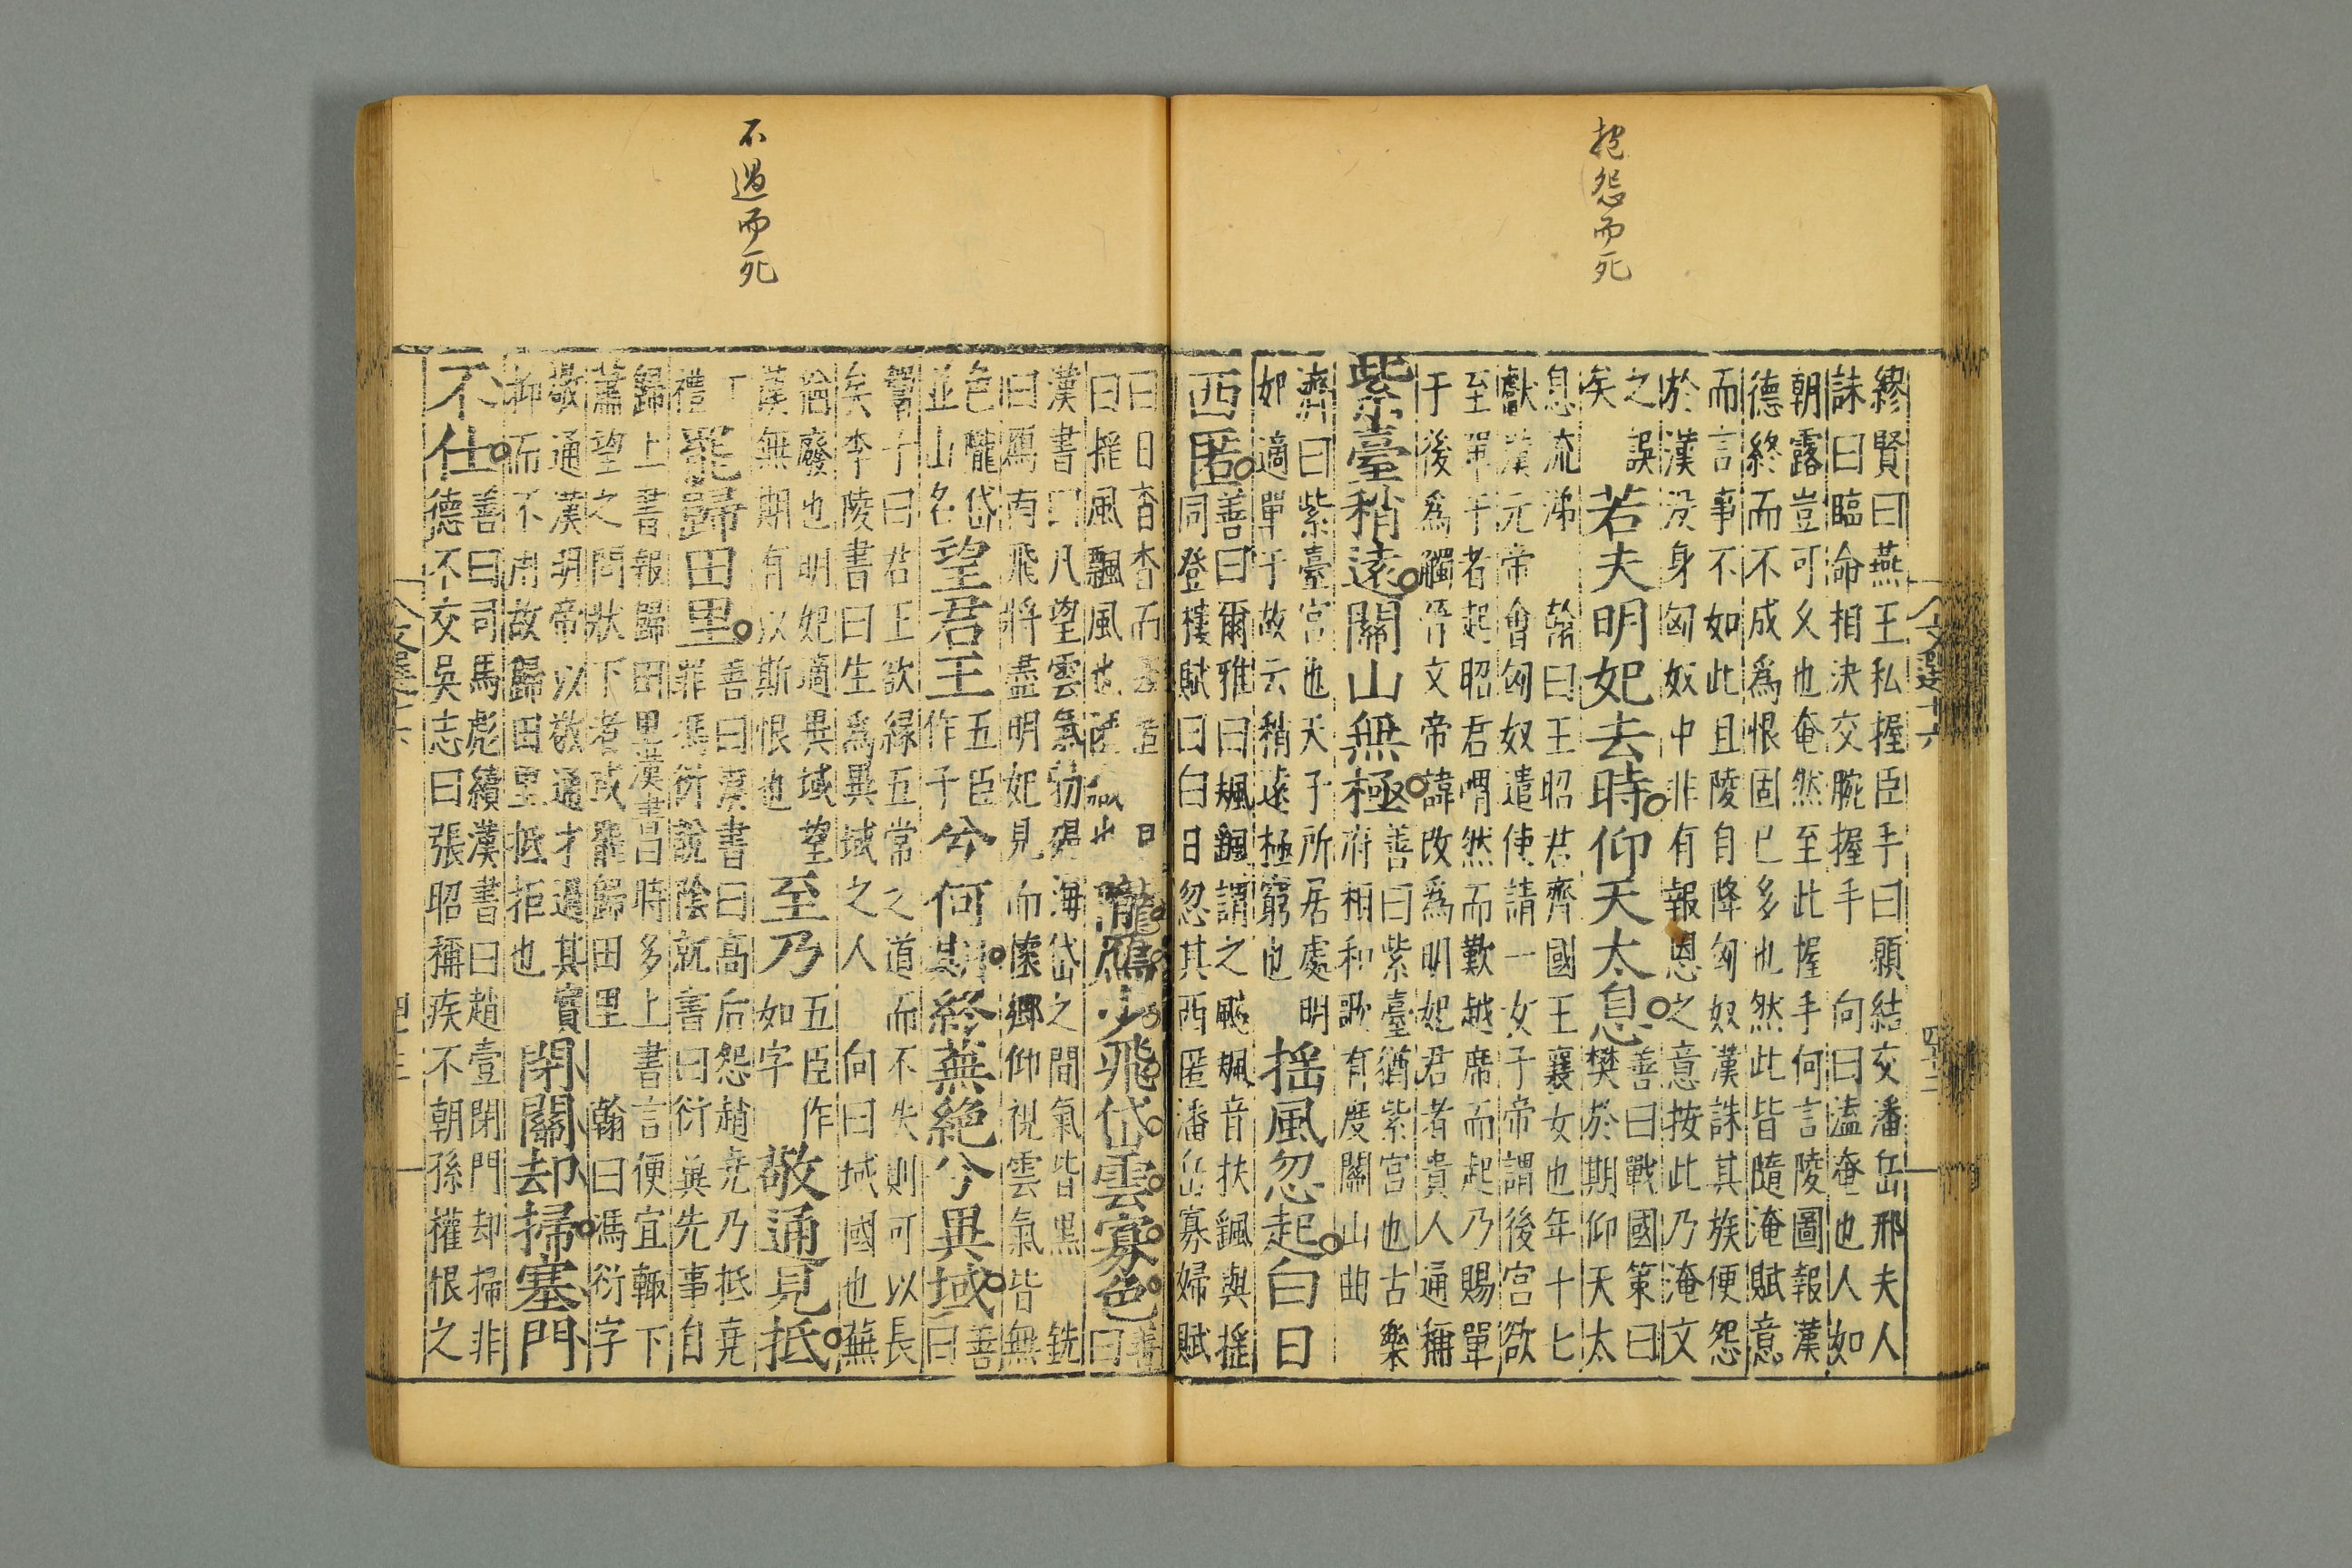 抱怨而死
繆賢曰燕王私握臣手曰願結交潘岳邢夫人
誄曰臨命相決交腕握手 向曰溘奄也人如
朝露豈可久也奄然至此握手何言陵圖報漢
德終而不成為恨固已多也然此皆隨淹賦意
而言事不如此且陵自降匈奴漢誅其族便怨
於漢没身匈奴中非有報恩之意按此乃淹文
之誤
矣
若夫明妃去時仰天太息
善曰戰國策曰
樊於期仰天太
息流涕 翰曰王昭君齊國王襄女也年十七
獻漢元帝會匈奴遣使請一女子帝謂後宫欲
至單于者起昭君喟然而歎越席而起乃賜單
于後為觸晉文帝諱改為明妃君者貴人通稱
紫臺稍遠關山無極
善曰紫臺猶紫宫也古樂
府相和歌有度關山曲
濟曰紫臺宫也天子所居處明
如適單于故云稍遠極窮也
摇風忽起白日
西匿
善曰爾雅曰飆颻謂之飈飆音扶颻與摇
同登樓賦曰白日忽其西匿潘岳寡婦賦
文選十六
不遇而死
曰日杳杳而
曰摇風飄風也
隴鴈少飛岱雲寡色
善
曰
漢書曰八望雲氣勃碣海岱之間氣皆黑 銑
曰鴈南飛將盡明妃見而懷鄉仰視雲氣皆無
色隴岱
並山名
望君王
五臣
作子
兮何期終蕪絶兮異域
善
曰
鬻子曰君王欲緣五常之道而不失則可以長
矣李陵書曰生為異域之人 向曰域國也蕪
絶猶廢也明妃適異域望
漢無期有以斯恨也
至乃
五臣作
如字
敬通見抵
罷歸田里
善曰漢書曰高后怨趙堯乃抵堯
罪馮衍說陰就書曰衍兾先事自
歸上書報歸田里漢書曰時多上書言便宜輙下
蕭望之問狀下者或罷歸田里 翰曰馮衍字
敬通漢明帝以敬通才過其實
抑而不用故歸田里抵拒也
閉關却掃塞門
不仕
善曰司馬彪續漢書曰趙壹閉門却掃非
德不交吳志曰張昭稱疾不朝孫權恨之